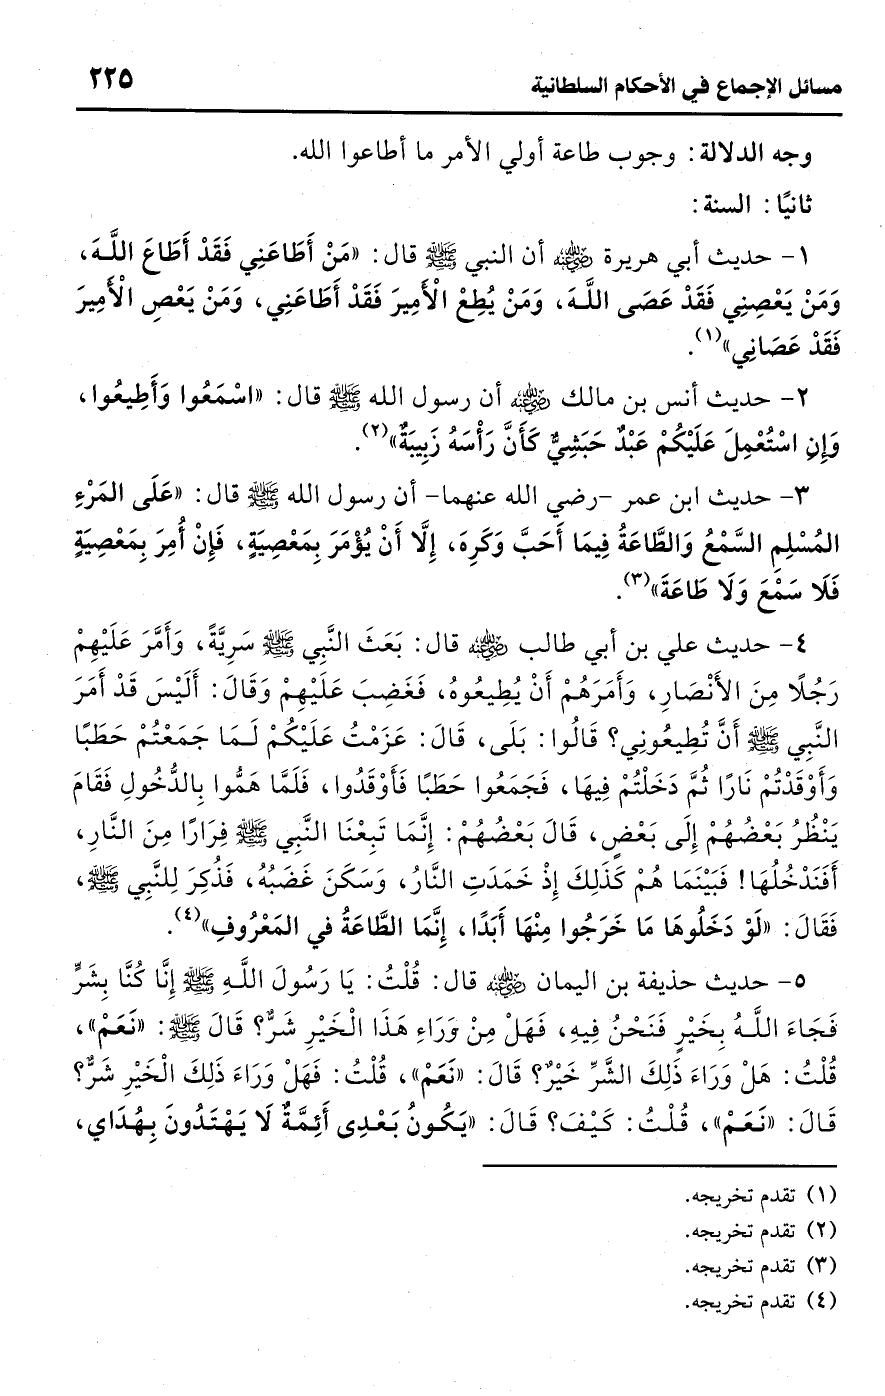 مسائل الإجماع في الأحكام السلطانية ٢٢٥
وجه الدلالة: وجوب طاعة أولي الأمر ما أطاعوا الله.
ثانيًا: السنة:
١- حديث أبي هريرة رضي الله عنه أن النبي ﷺ قال: «مَنْ أَطَاعَنِي فَقَدْ أَطَاعَ اللَّهَ،
وَمَنْ يَعْصِنِي فَقَدْ عَصَى اللَّهَ، وَمَنْ يُطِعْ الْأَمِيرَ فَقَدْ أَطَاعَنِي، وَمَنْ يَعْصِ الْأَمِيرَ
فَقَدْ عَصَانِي»(١).
٢- حديث أنس بن مالك رضي الله عنه أن رسول الله ﷺ قال: «اسْمَعُوا وَأَطِيعُوا،
وَإِنِ اسْتُعْمِلَ عَلَيْكُمْ عَبْدٌ حَبَشِيٌّ كَأَنَّ رَأْسَهُ زَبِيبَةٌ»(٢).
٣- حديث ابن عمر -رضي الله عنهما- أن رسول الله ﷺ قال: «عَلَى المَرْءِ
المُسْلِمِ السَّمْعُ وَالطَّاعَةُ فِيمَا أَحَبَّ وَكَرِهَ، إِلَّا أَنْ يُؤْمَرَ بِمَعْصِيَةٍ، فَإِنْ أُمِرَ بِمَعْصِيَةٍ
فَلَا سَمْعَ وَلَا طَاعَةَ»(٣).
٤- حديث علي بن أبي طالب رضي الله عنه قال: بَعَثَ النَّبِي ﷺ سَرِيَّةً، وَأَمَّرَ عَلَيْهِمْ
رَجُلًا مِنَ الأَنْصَارِ، وَأَمَرَهُمْ أَنْ يُطِيعُوهُ، فَغَضِبَ عَلَيْهِمْ وَقَالَ: أَلَيْسَ قَدْ أَمَرَ
النَّبِي ﷺ أَنَّ تُطِيعُونِي؟ قَالُوا: بَلَى، قَالَ: عَزَمْتُ عَلَيْكُمْ لَمَا جَمَعْتُمْ حَطَبًا
وَأَوْقَدْتُمْ نَارًا ثُمَّ دَخَلْتُمْ فِيهَا، فَجَمَعُوا حَطَبًا فَأَوْقَدُوا، فَلَمَّا هَمُّوا بِالدُّخُولِ فَقَامَ
يَنْظُرُ بَعْضُهُمْ إِلَى بَعْضٍ، قَالَ بَعْضُهُمْ: إِنَّمَا تَبِعْنَا النَّبِي ﷺ فِرَارًا مِنَ النَّارِ،
أَفَنَدْخُلُهَا! فَبَيْنَمَا هُمْ كَذَلِكَ إِذْ خَمَدَتِ النَّارُ، وَسَكَنَ غَضَبُهُ، فَذُكِرَ لِلنَّبِي ﷺ،
فَقَالَ: «لَوْ دَخَلُوهَا مَا خَرَجُوا مِنْهَا أَبَدًا، إِنَّمَا الطَّاعَةُ في المَعْرُوفِ»(٤).
٥- حديث حذيفة بن اليمان رضي الله عنه قال: قُلْتُ: يَا رَسُولَ اللَّهِ ﷺ إِنَّا كُنَّا بِشَرٍّ
فَجَاءَ اللَّهُ بِخَيْرٍ فَنَحْنُ فِيهِ، فَهَلْ مِنْ وَرَاءِ هَذَا الْخَيْرِ شَرٌّ؟ قَالَ ﷺ: «نَعَمْ»،
قُلْتُ: هَلْ وَرَاءَ ذَلِكَ الشَّرِّ خَيْرٌ؟ قَالَ: «نَعَمْ»، قُلْتُ: فَهَلْ وَرَاءَ ذَلِكَ الْخَيْرِ شَرٌّ؟
قَالَ: «نَعَمْ»، قُلْتُ: كَيْفَ؟ قَالَ: «يَكُونُ بَعْدِى أَئِمَّةٌ لَا يَهْتَدُونَ بِهُدَاي،
(١) تقدم تخريجه.
(٢) تقدم تخريجه.
(٣) تقدم تخريجه.
(٤) تقدم تخريجه.